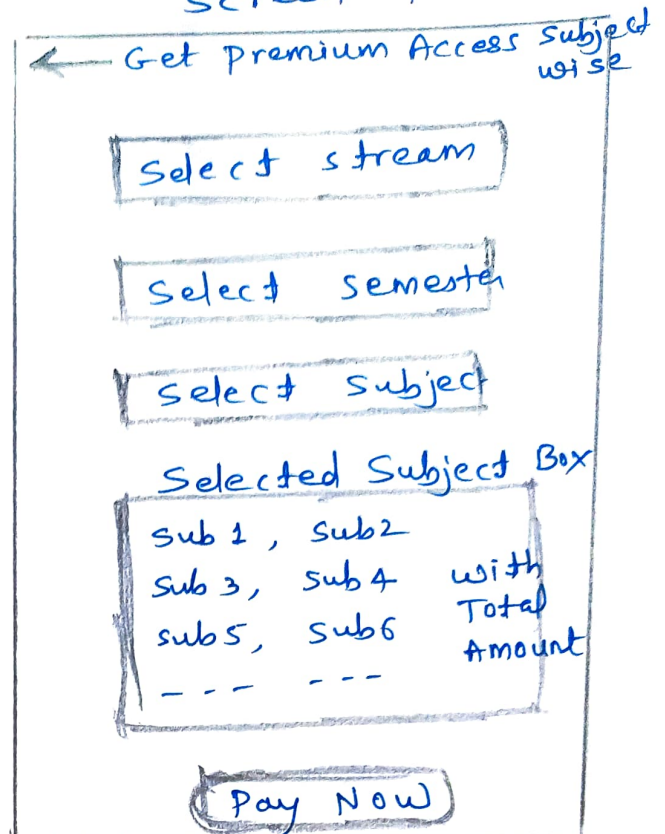 Get Premium Access Subject wise
Select stream
Select semester
Select Subject
Selected Subject Box
Sub 1, Sub2
Sub 3, Sub 4
sub5, Sub6
--- ---
with
Total
Amount
Pay Now